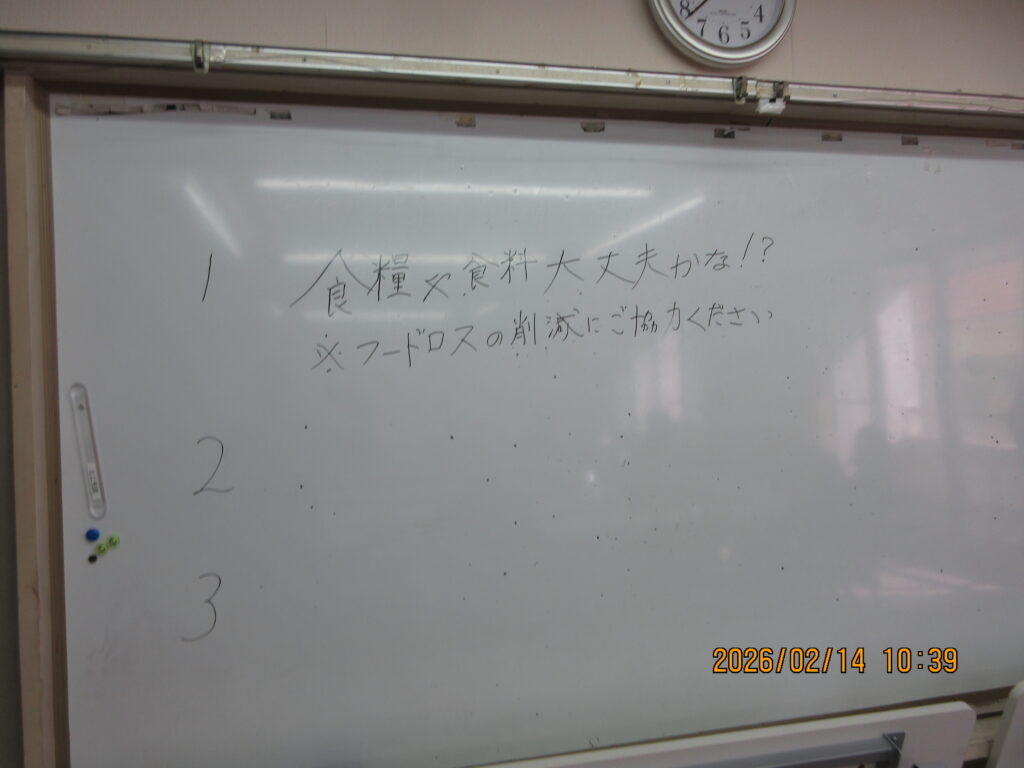 8 7 6 5 4
1 食糧や食料大丈夫かな!?
※フードロスの削減にご協力ください
2
3
2026/02/14 10:39